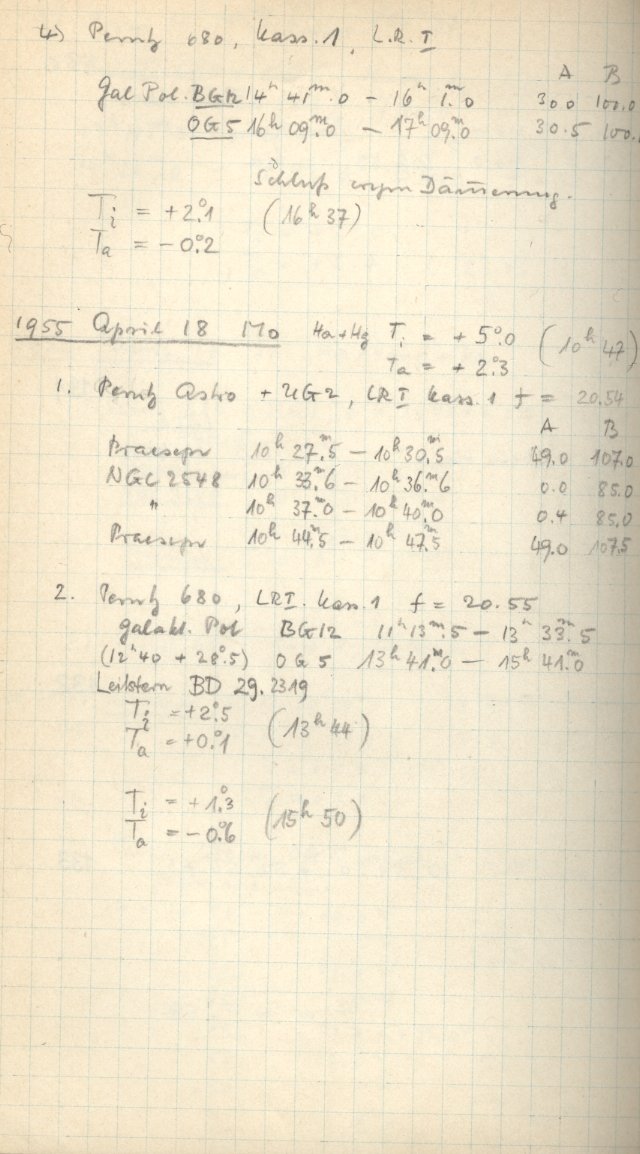 4) Perutz 680, Kass. 1, L.R. I
A B
Gal Pol. BG12 14h 41m.0 – 16h 1m.0 30.0 100.0
OG5 16h 09m.0 – 17h 09m.0 30.5 100.
Schluß wegen Dämmerung.
Ti = +2°.1 (16h 37)
Ta = -0°.2
1955 April 18 Mo Ha+Hg Ti = +5°.0 (10h 47)
Ta = +2°.3
1. Perutz Astro + UG2, LR I Kass. 1 f = 20.54
A B
Praesepe 10h 27m.5 – 10h 30m.5 49.0 107.0
NGC 2548 10h 33m.6 – 10h 36m.6 0.0 85.0
" 10h 37m.0 – 10h 40m.0 0.4 85.0
Praesepe 10h 44m.5 – 10h 47m.5 49.0 107.5
2. Perutz 680, LR I. Kass. 1 f = 20.55
galakt. Pol BG12 11h 13m.5 – 13h 33m.5
(12h40 + 28°.5) OG5 13h 41m.0 – 15h 41m.0
Leitstern BD 29.2319
Ti = +2°.5 (13h 44)
Ta = +0°.1
Ti = +1°.3 (15h 50)
Ta = -0°.6